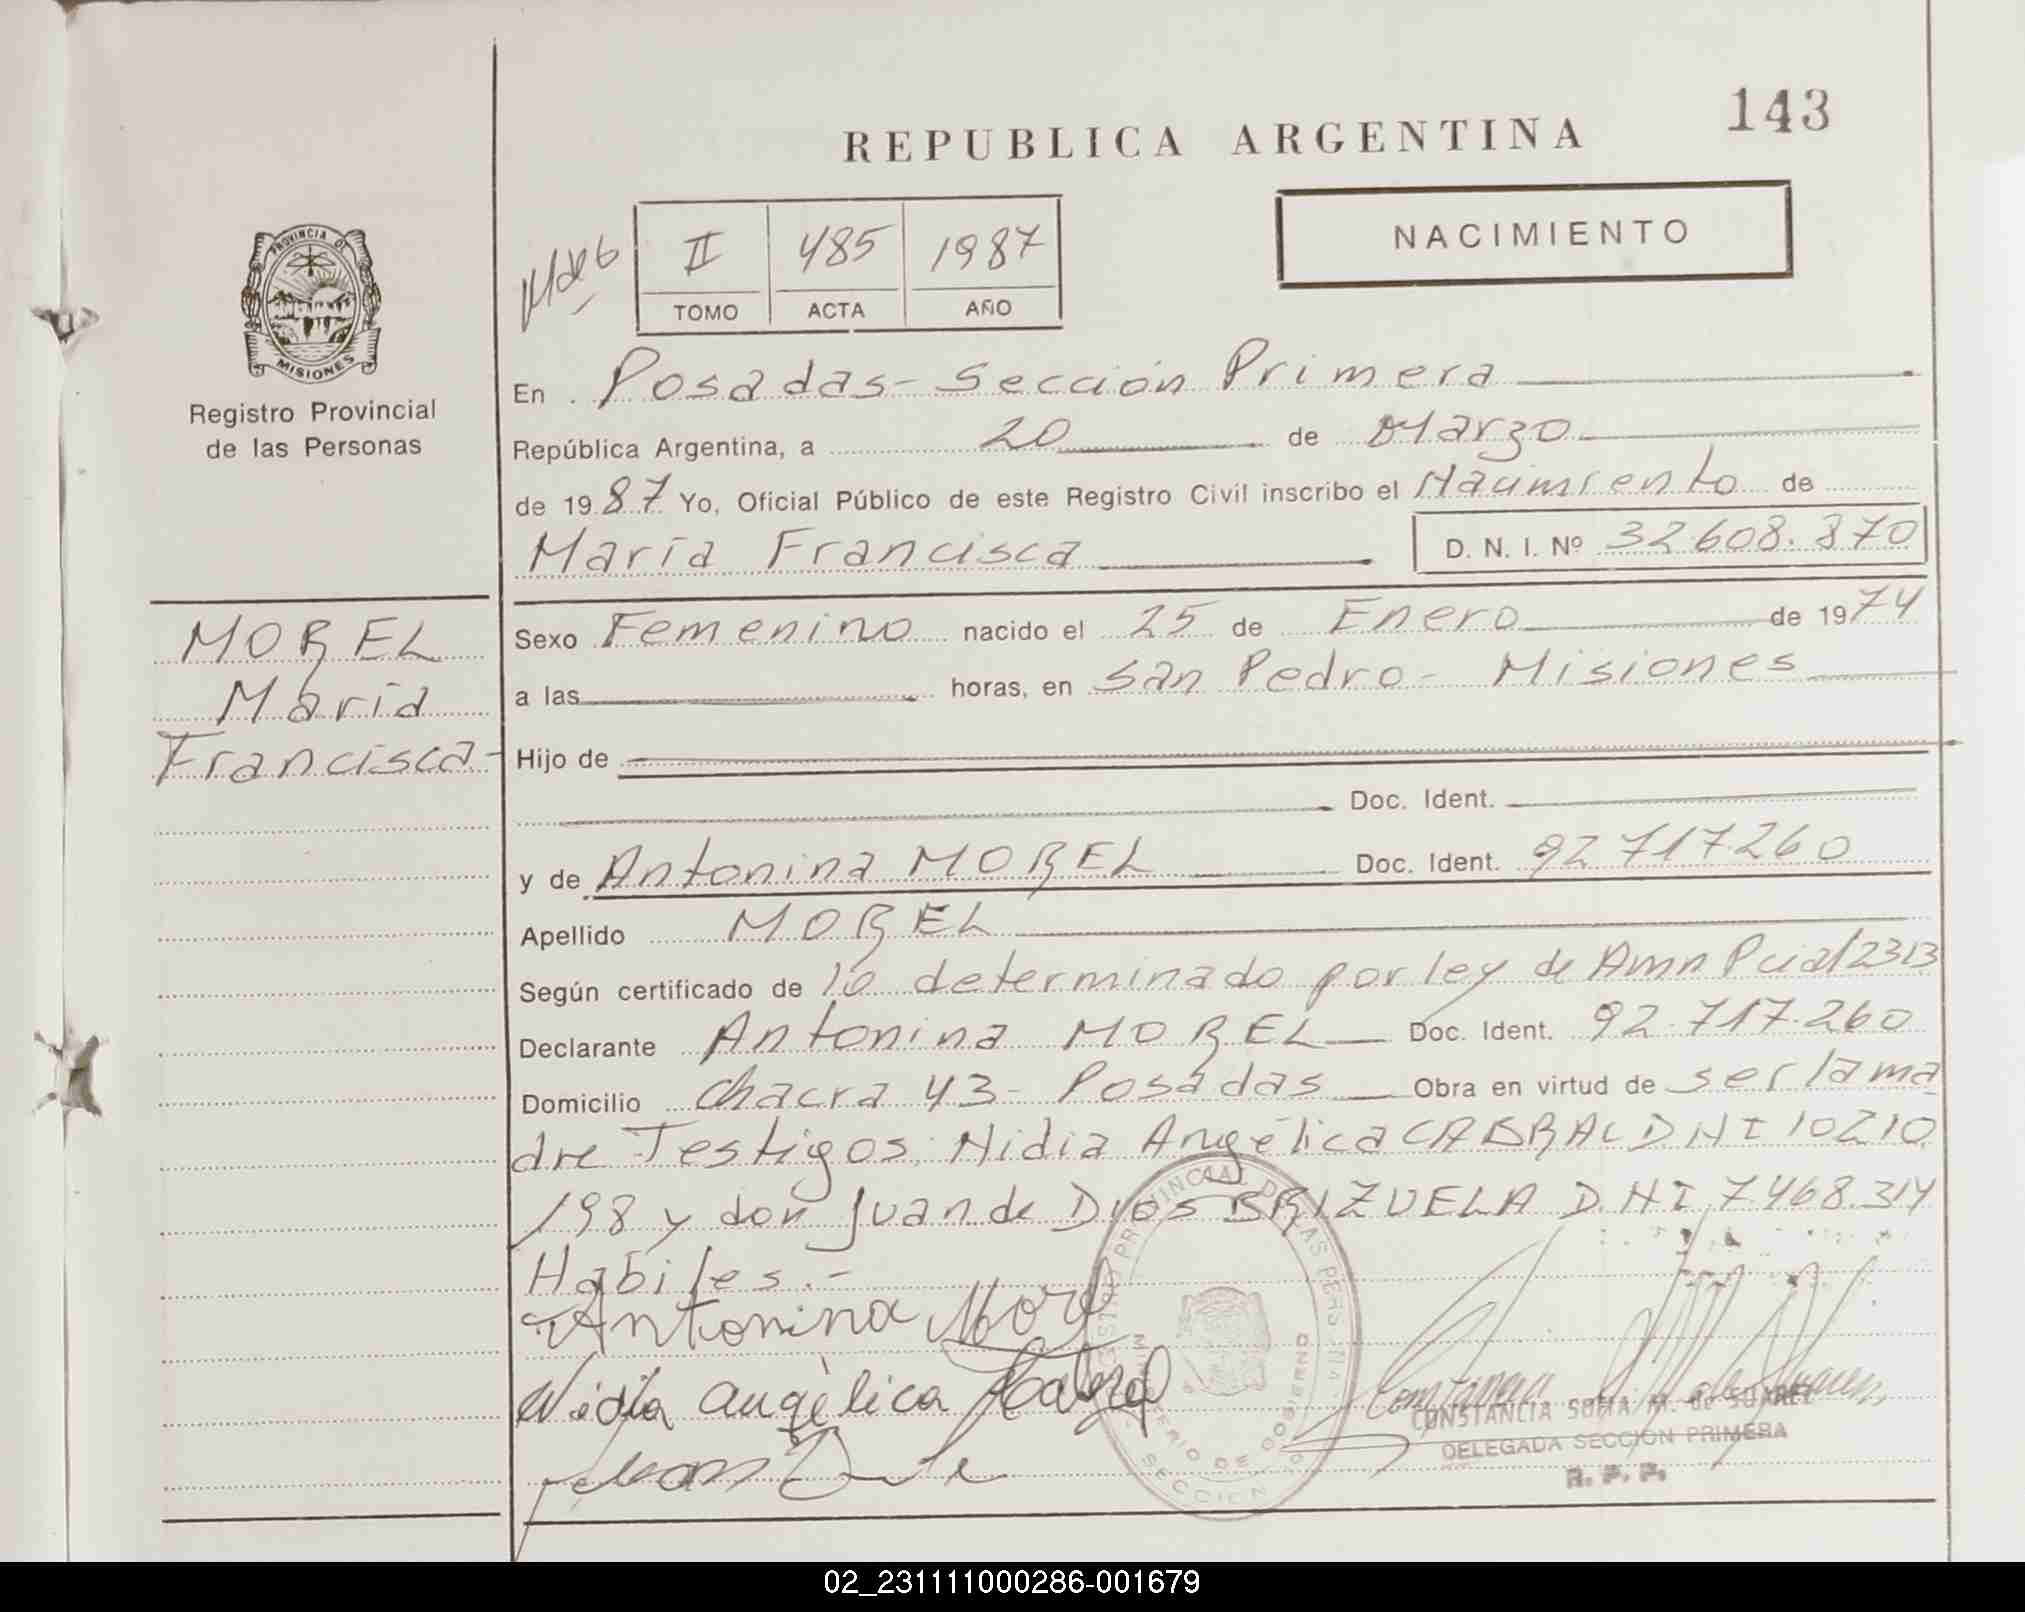 143
REPUBLICA ARGENTINA
NACIMIENTO
II 485 1987
TOMO ACTA AÑO
PROVINCIA DE
MISIONES
Registro Provincial
de las Personas
En Posadas - Sección Primera
República Argentina, a 20 de Marzo
de 1987 Yo, Oficial Público de este Registro Civil inscribo el Nacimiento de
María Francisca D. N. I. Nº 32.608.370
MOREL
María
Francisca-
Sexo Femenino nacido el 25 de Enero de 1974
a las horas, en San Pedro - Misiones
Hijo de
Doc. Ident.
y de Antonina MOREL Doc. Ident. 92.717.260
Apellido MOREL
Según certificado de lo determinado por ley de Amn Pcial 2313
Declarante Antonina MOREL Doc. Ident. 92.717.260
Domicilio Chacra 43 - Posadas Obra en virtud de ser la ma
dre Testigos: Nidia Angélica CABRAL D N I 10210
198 y don Juan de Dios BRIZUELA D.N.I. 7.468.314
Habiles.-
Antonina Morel
Nidia Angélica Cabral
CONSTANCIA SOFIA M. de SUAREZ
DELEGADA SECCION PRIMERA
R. P. P.
02_231111000286-001679